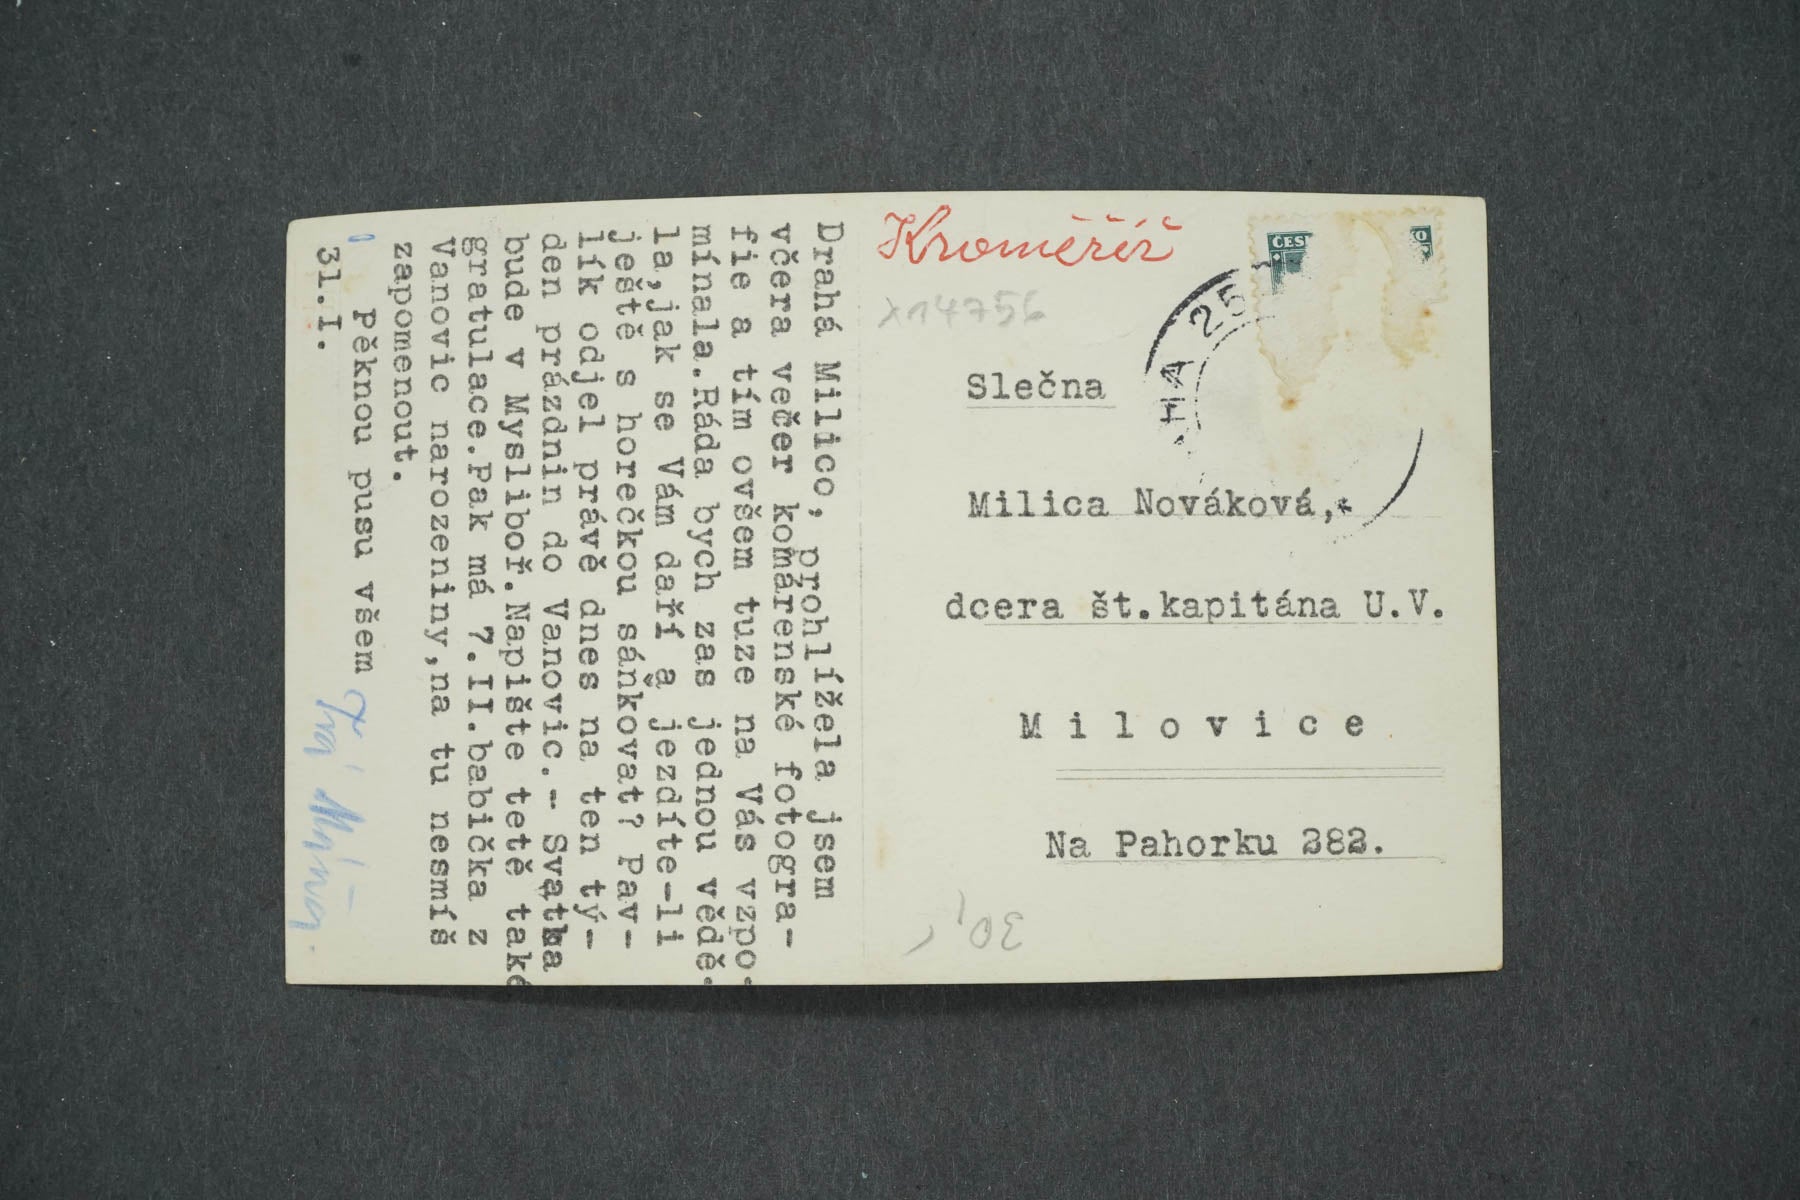 Drahá Milico, prohlížela jsem
včera večer komárenské fotogra-
fie a tím ovšem tuze na Vás vzpo-
mínala.Ráda bych zas jednou vědě-
la,jak se Vám daří a jezdíte-li
ještě s horečkou sánkovat? Pav-
lík odjel právě dnes na ten tý-
den prázdnin do Vanovic.- Svatka
bude v Mysliboř.Napište tetě také
gratulace.Pak má 7.II.babička z
Vanovic narozeniny,na tu nesmíš
zapomenout.
Pěknou pusu všem
31.I.
Kroměříž
x14756
ČES
O
HA 25
Slečna
Milica Nováková,
dcera št.kapitána U.V.
Milovice
Na Pahorku 282.
30,